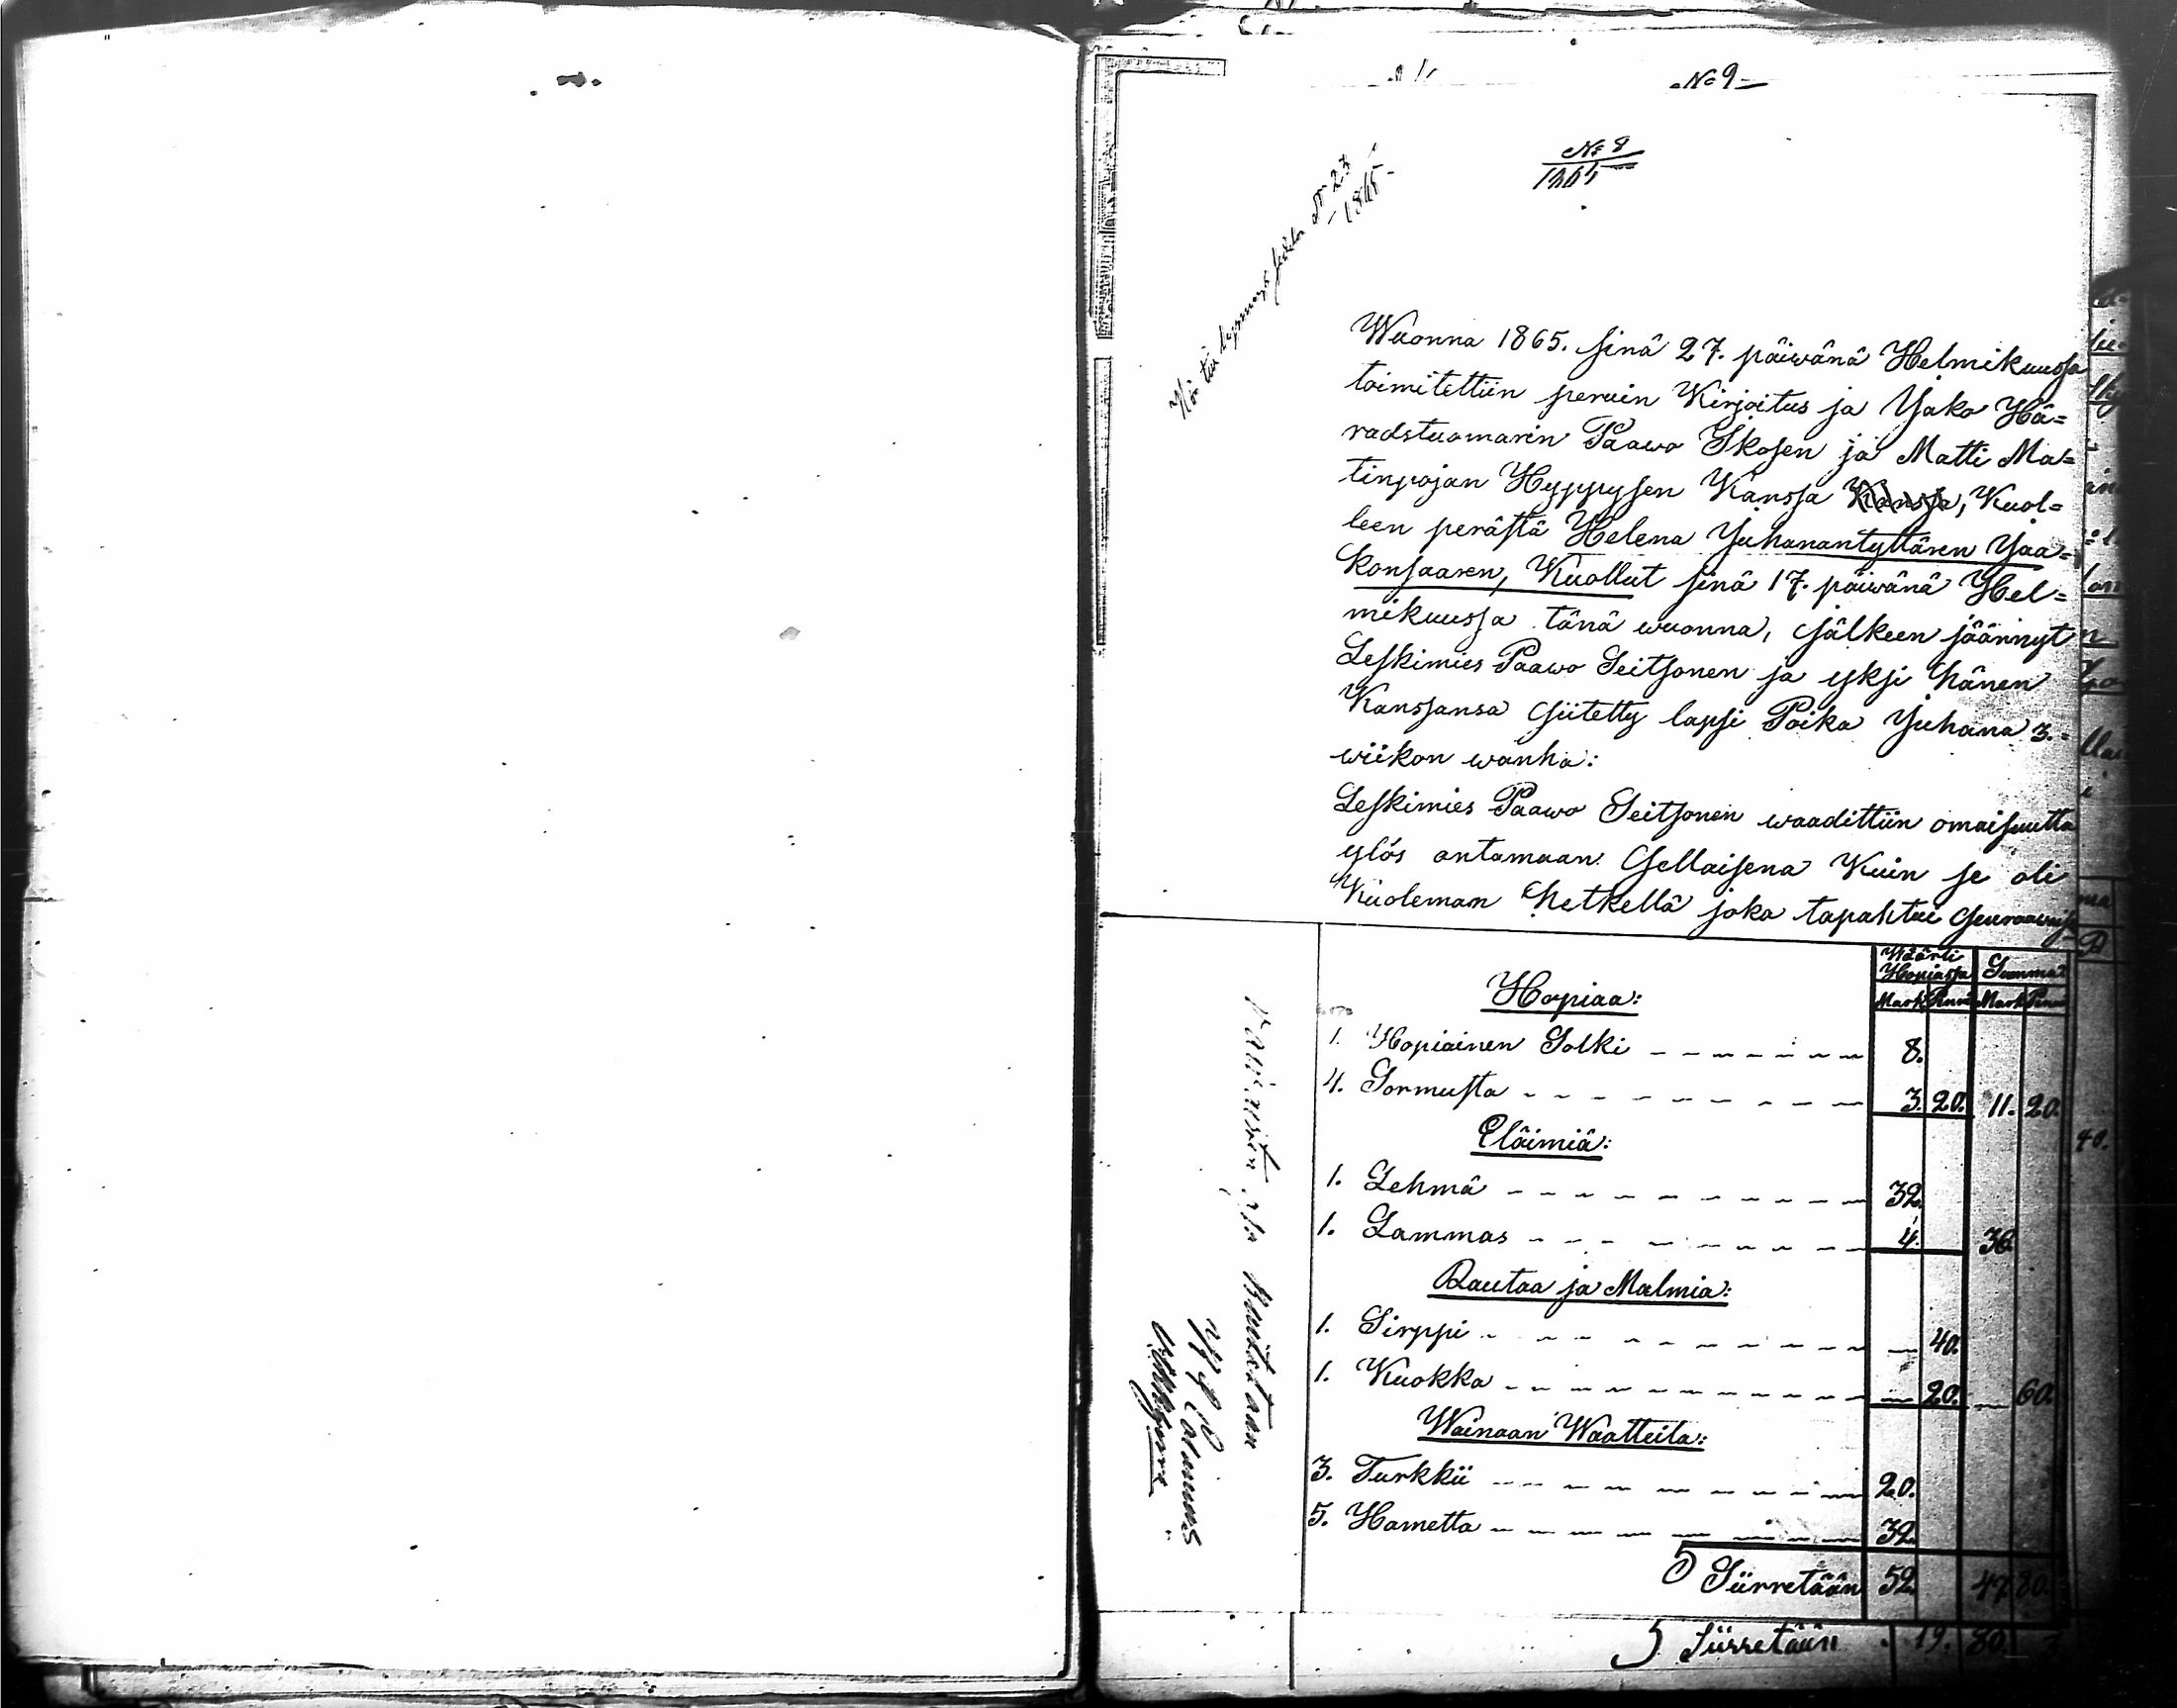 No 9
No 8
1865
No 23
1865
Wuonna 1865. sinä 27. päiwänä Helmikuussa
toimitettiin peruin Kirjoitus ja Jako Hä=
radstuomarin Paawo Ikosen ja Matti Ma=
tinpojan Hyppysen Kanssa Kanssa, Kuol=
leen perästä Helena Juhanantyttären Jaa=
konsaaren, Kuollut sinä 17. päiwänä Hel=
mikuussa tänä wuonna, jälkeen jäännyt
Leskimies Paawo Seitsonen ja yksi hänen
Kanssansa siitetty lapsi Poika Juhana 3.
wiikon wanha:
Leskimies Paawo Seitsonen waadittiin omaisuutta
ylös antamaan Sellaisena Kuin se oli
Kuoleman hetkellä joka tapahtui
Wäärti Hopiassa Summa
Mark Penni Mark Penni
Hopiaa:
1. Hopiainen Solki 8.
4. Sormusta 3. 20. 11. 20.
Eläimiä:
1. Lehmä 32.
1. Lammas 4. 36.
Rautaa ja Malmia:
1. Sirppi 40.
1. Kuokka 20. 60.
Wainaan Waatteita:
3. Turkkii 20.
5. Hametta 32.
Siirretään 52. 47 80.
Siirretään 19. 80.
40.